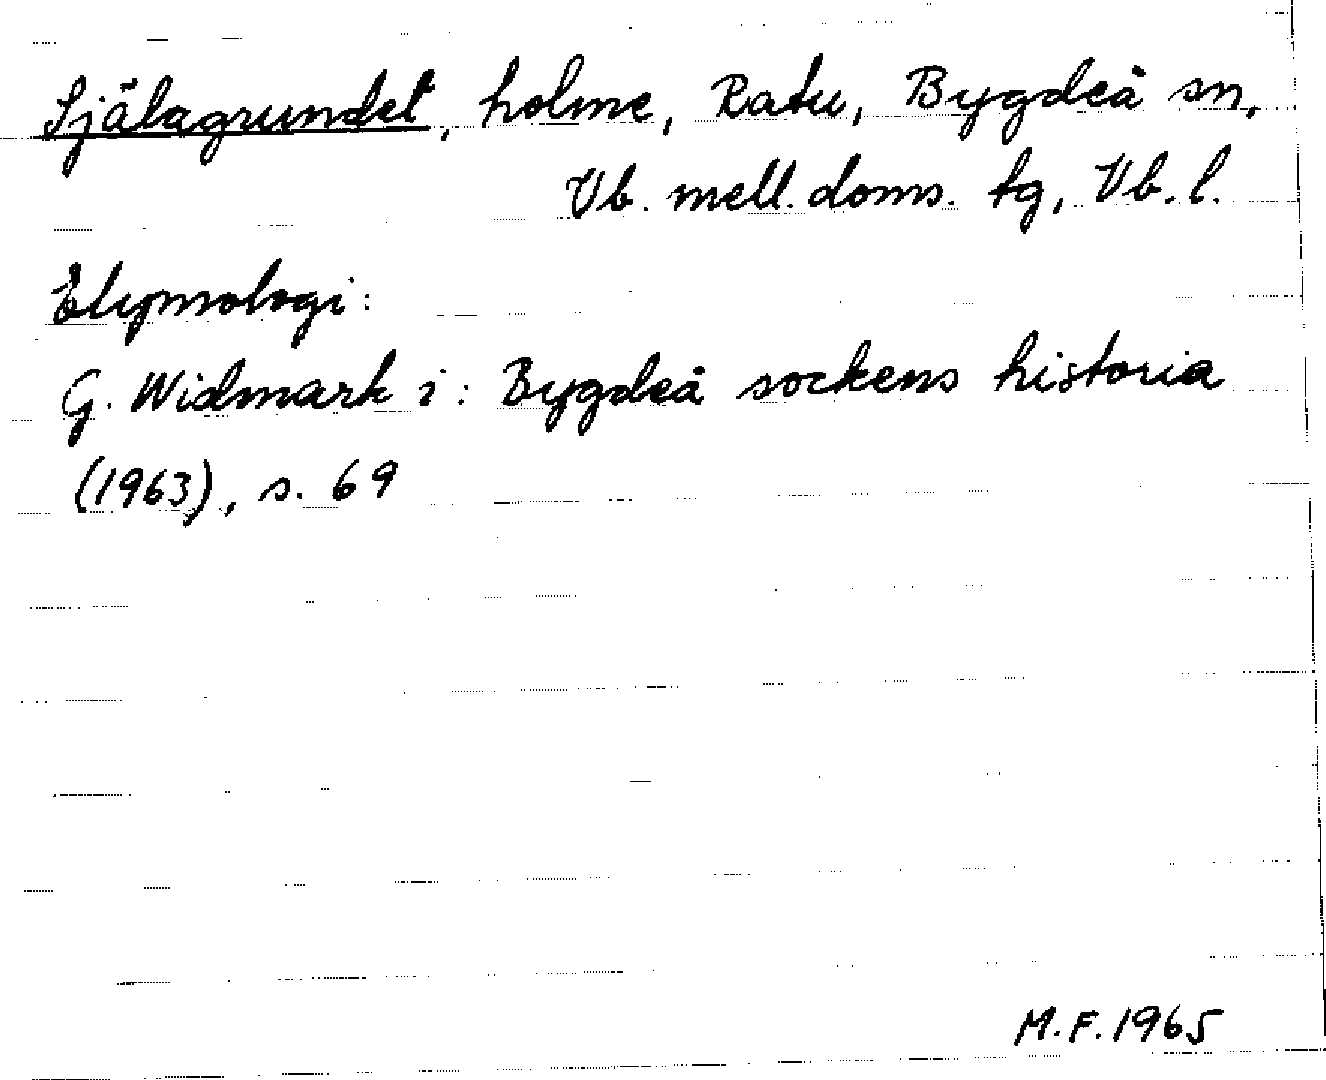 Själagrundet, holme, Ratu, Bygdeå sn,
Vb. mell. doms. tg, Vb. l.
Etymologi:
G. Widmark i: Bygdeå sockens historia
(1963), s. 69
M.F. 1965